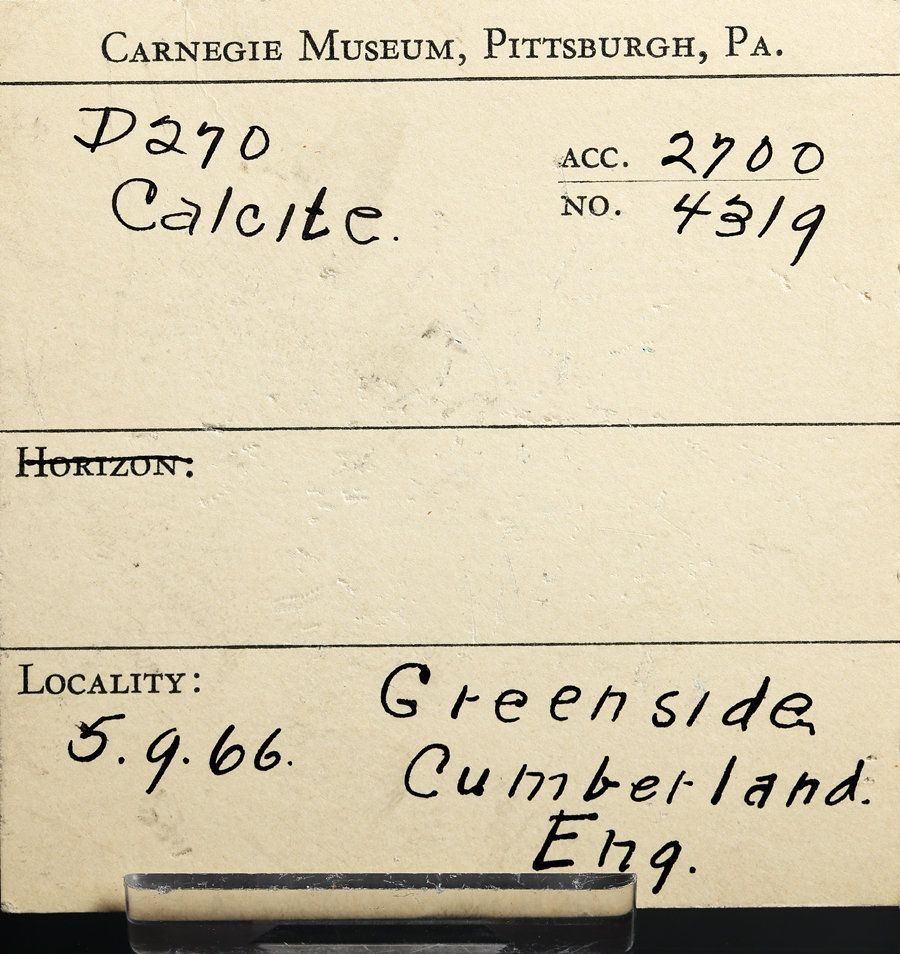 CARNEGIE MUSEUM, PITTSBURGH, PA.
D270
Calcite.
ACC. 2700
NO. 4319
HORIZON:
LOCALITY:
5.9.66.
Greenside,
Cumberland.
Eng.